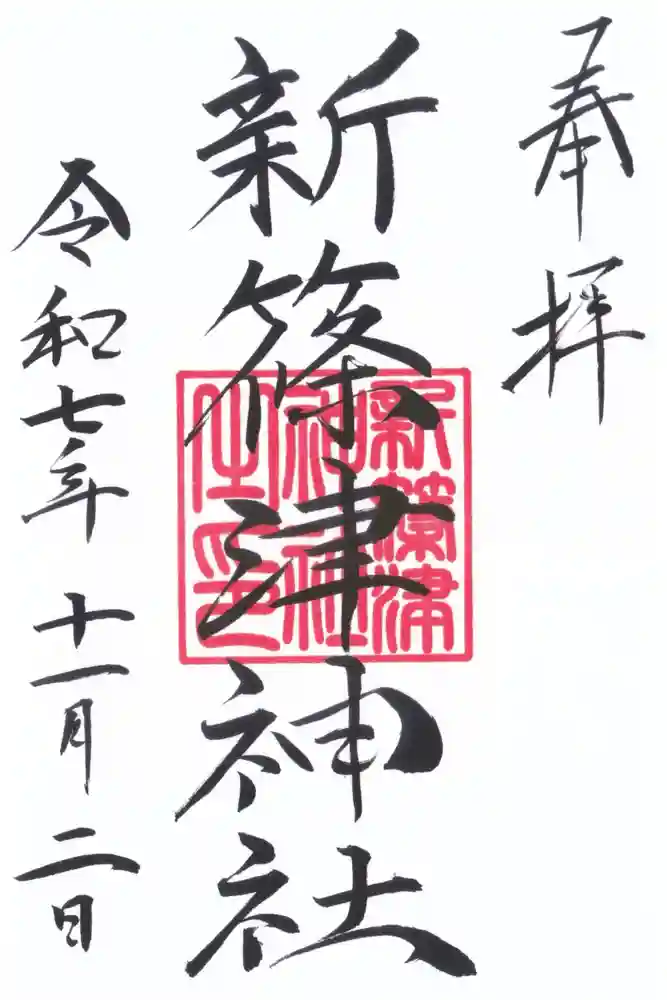 奉拝
新篠津神社
新篠津
神社
之印
令和七年 十一月 二日